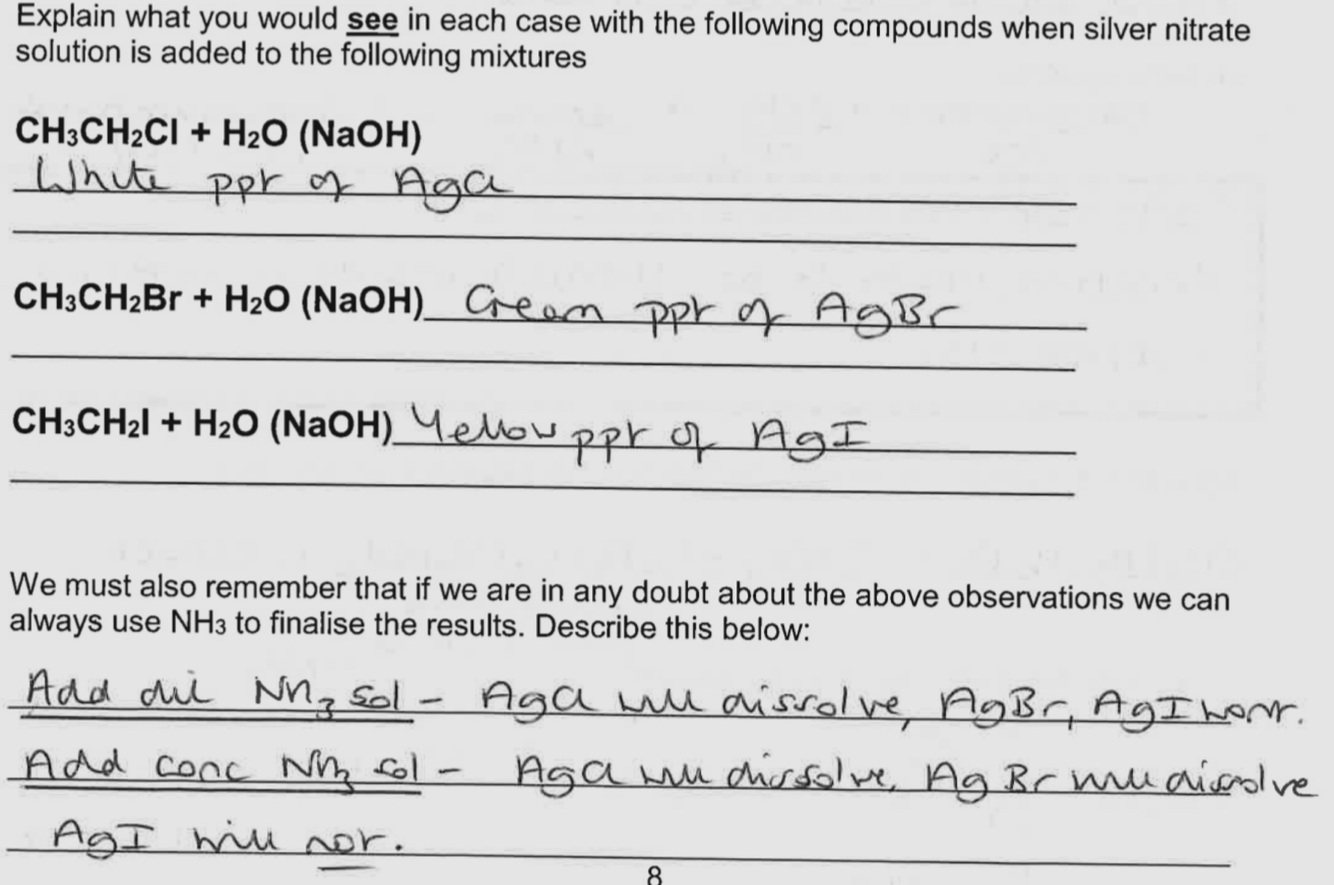 Explain what you would see in each case with the following compounds when silver nitrate
solution is added to the following mixtures
CH₃CH₂Cl + H₂O (NaOH)
White ppt of AgCl
CH₃CH₂Br + H₂O (NaOH) Cream ppt of AgBr
CH₃CH₂I + H₂O (NaOH) Yellow ppt of AgI
We must also remember that if we are in any doubt about the above observations we can
always use NH₃ to finalise the results. Describe this below:
Add dil NH₃ sol - AgCl will dissolve, AgBr, AgI wont.
Add conc NH₃ sol - AgCl will dissolve, AgBr will dissolve
AgI will not.
8